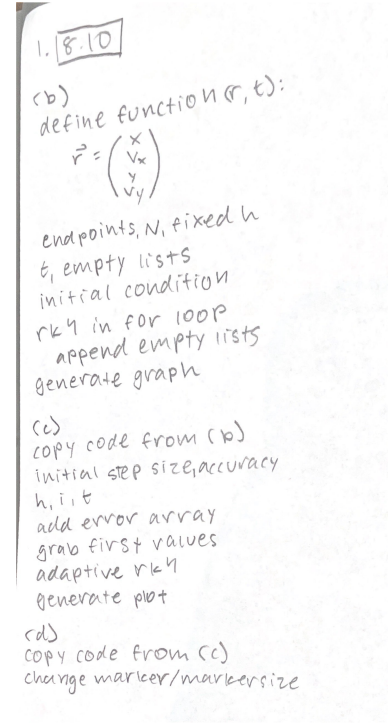 1. 8.10
(b)
define function(r, t):
r⃗ = (x
Vx
y
Vy)
endpoints, N, fixed h
t, empty lists
initial condition
rk4 in for loop
append empty lists
generate graph
(c)
copy code from (b)
initial step size, accuracy
h, i, t
add error array
grab first values
adaptive rk4
generate plot
(d)
copy code from (c)
change marker/markersize